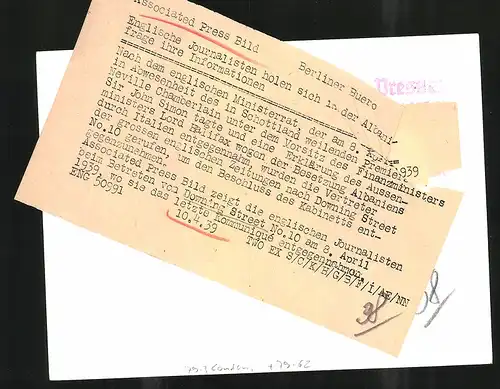 Associated Press Bild     Berliner Buero
Englische Journalisten holen sich in der Alban-
frage ihre Informationen
Nach dem englischen Ministerrat, der am 8. April
in Abwesenheit des in Schottland weilenden Premiers
Neville Chamberlain unter dem Vorsitz des Finanzministers
Sir John Simon tagte und eine Erklärung des Aussen-
ministers Lord Halifax wegen der Besetzung Albaniens
durch Italien entgegennahm, wurden die Vertreter
der grossen englischen Zeitungen nach Downing Street
No.10 gerufen, um den Beschluss des Kabinetts ent-
gegenzunehmen.
Associated Press Bild zeigt die englischen Journalisten
beim Betreten von Downing Street No.10 am 8. April
1939, wo sie das letzte Kommuniqué entgegennahmen.
ENG 50991     TWO EX S/C/K/B/G/B/F/I/AE/NN
10.4.39
939
38
38/